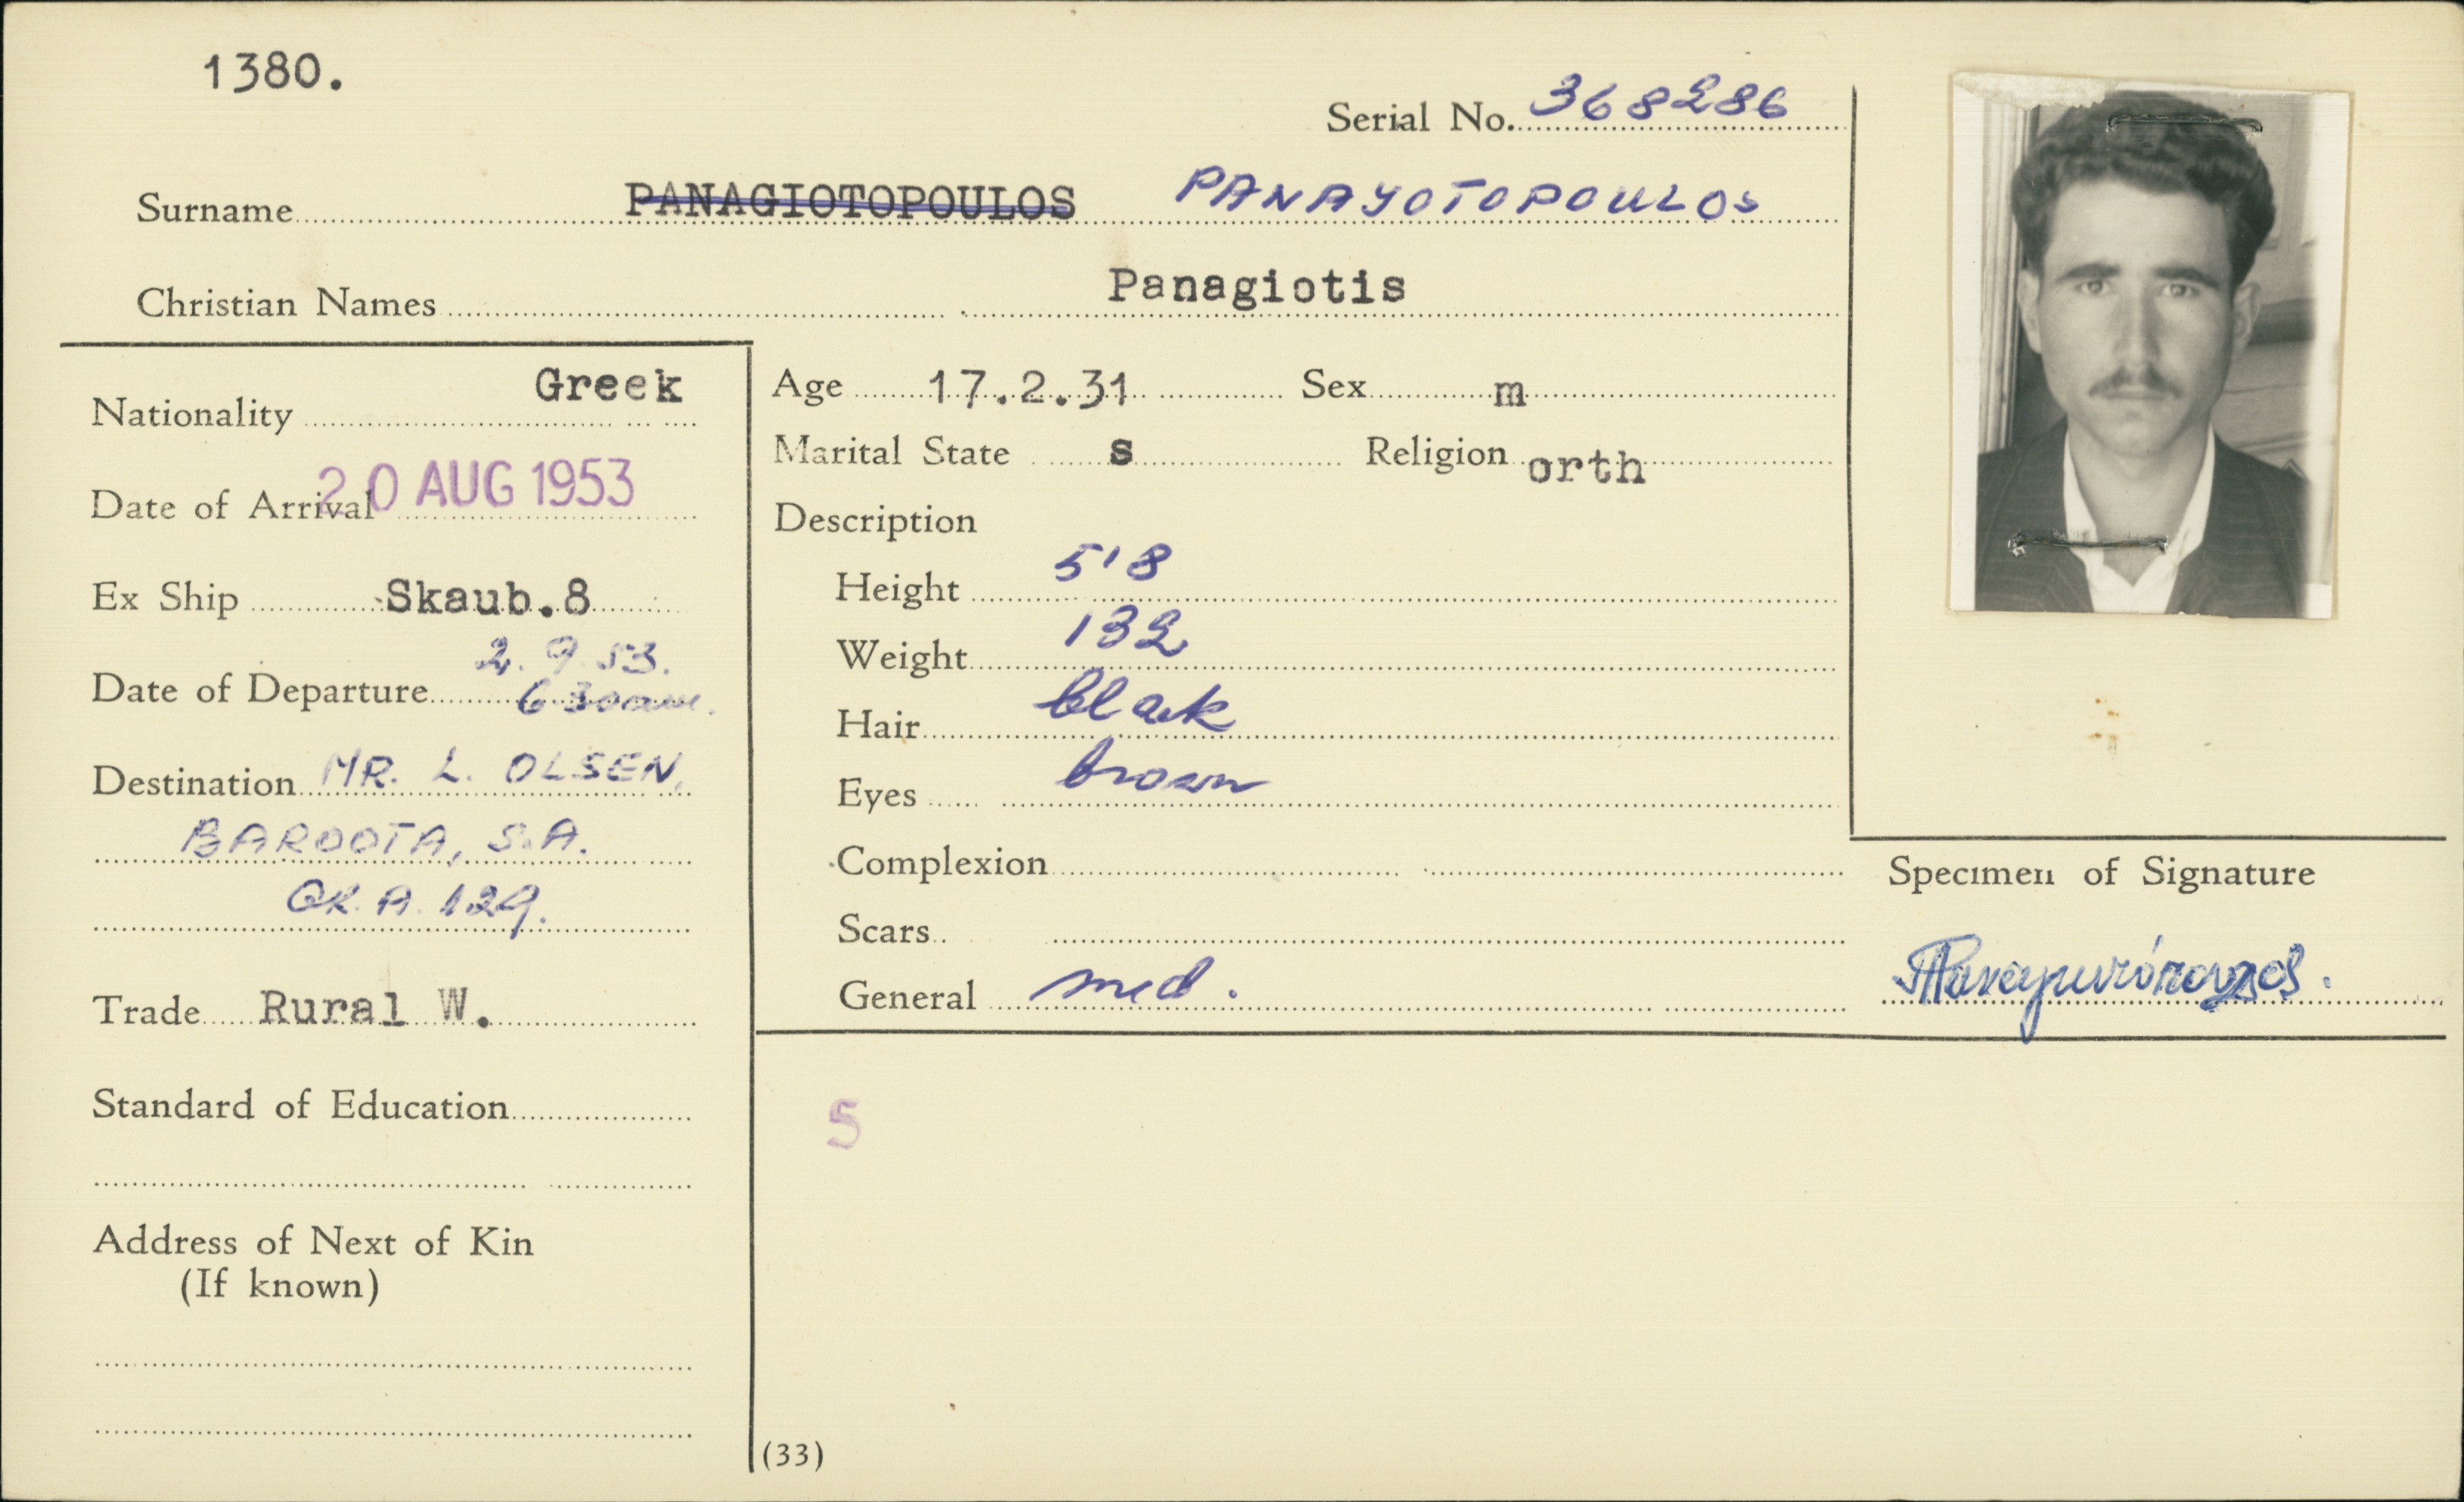 1380.
Serial No. 368286
Surname PANAGIOTOPOULOS PANAYOTOPOULOS
Christian Names Panagiotis
Nationality Greek
Date of Arrival 20 AUG 1953
Ex Ship Skaub.8
Date of Departure 2.9.53.
6 30am.
Destination MR. L. OLSEN,
BAROOTA, S.A.
GR. A. 129.
Trade Rural W.
Standard of Education
Address of Next of Kin
(If known)
Age 17.2.31 Sex m
Marital State s Religion orth
Description
Height 5'8
Weight 132
Hair black
Eyes brown
Complexion
Scars
General med.
Specimen of Signature
Παναγιωτόπουλος.
5
(33)